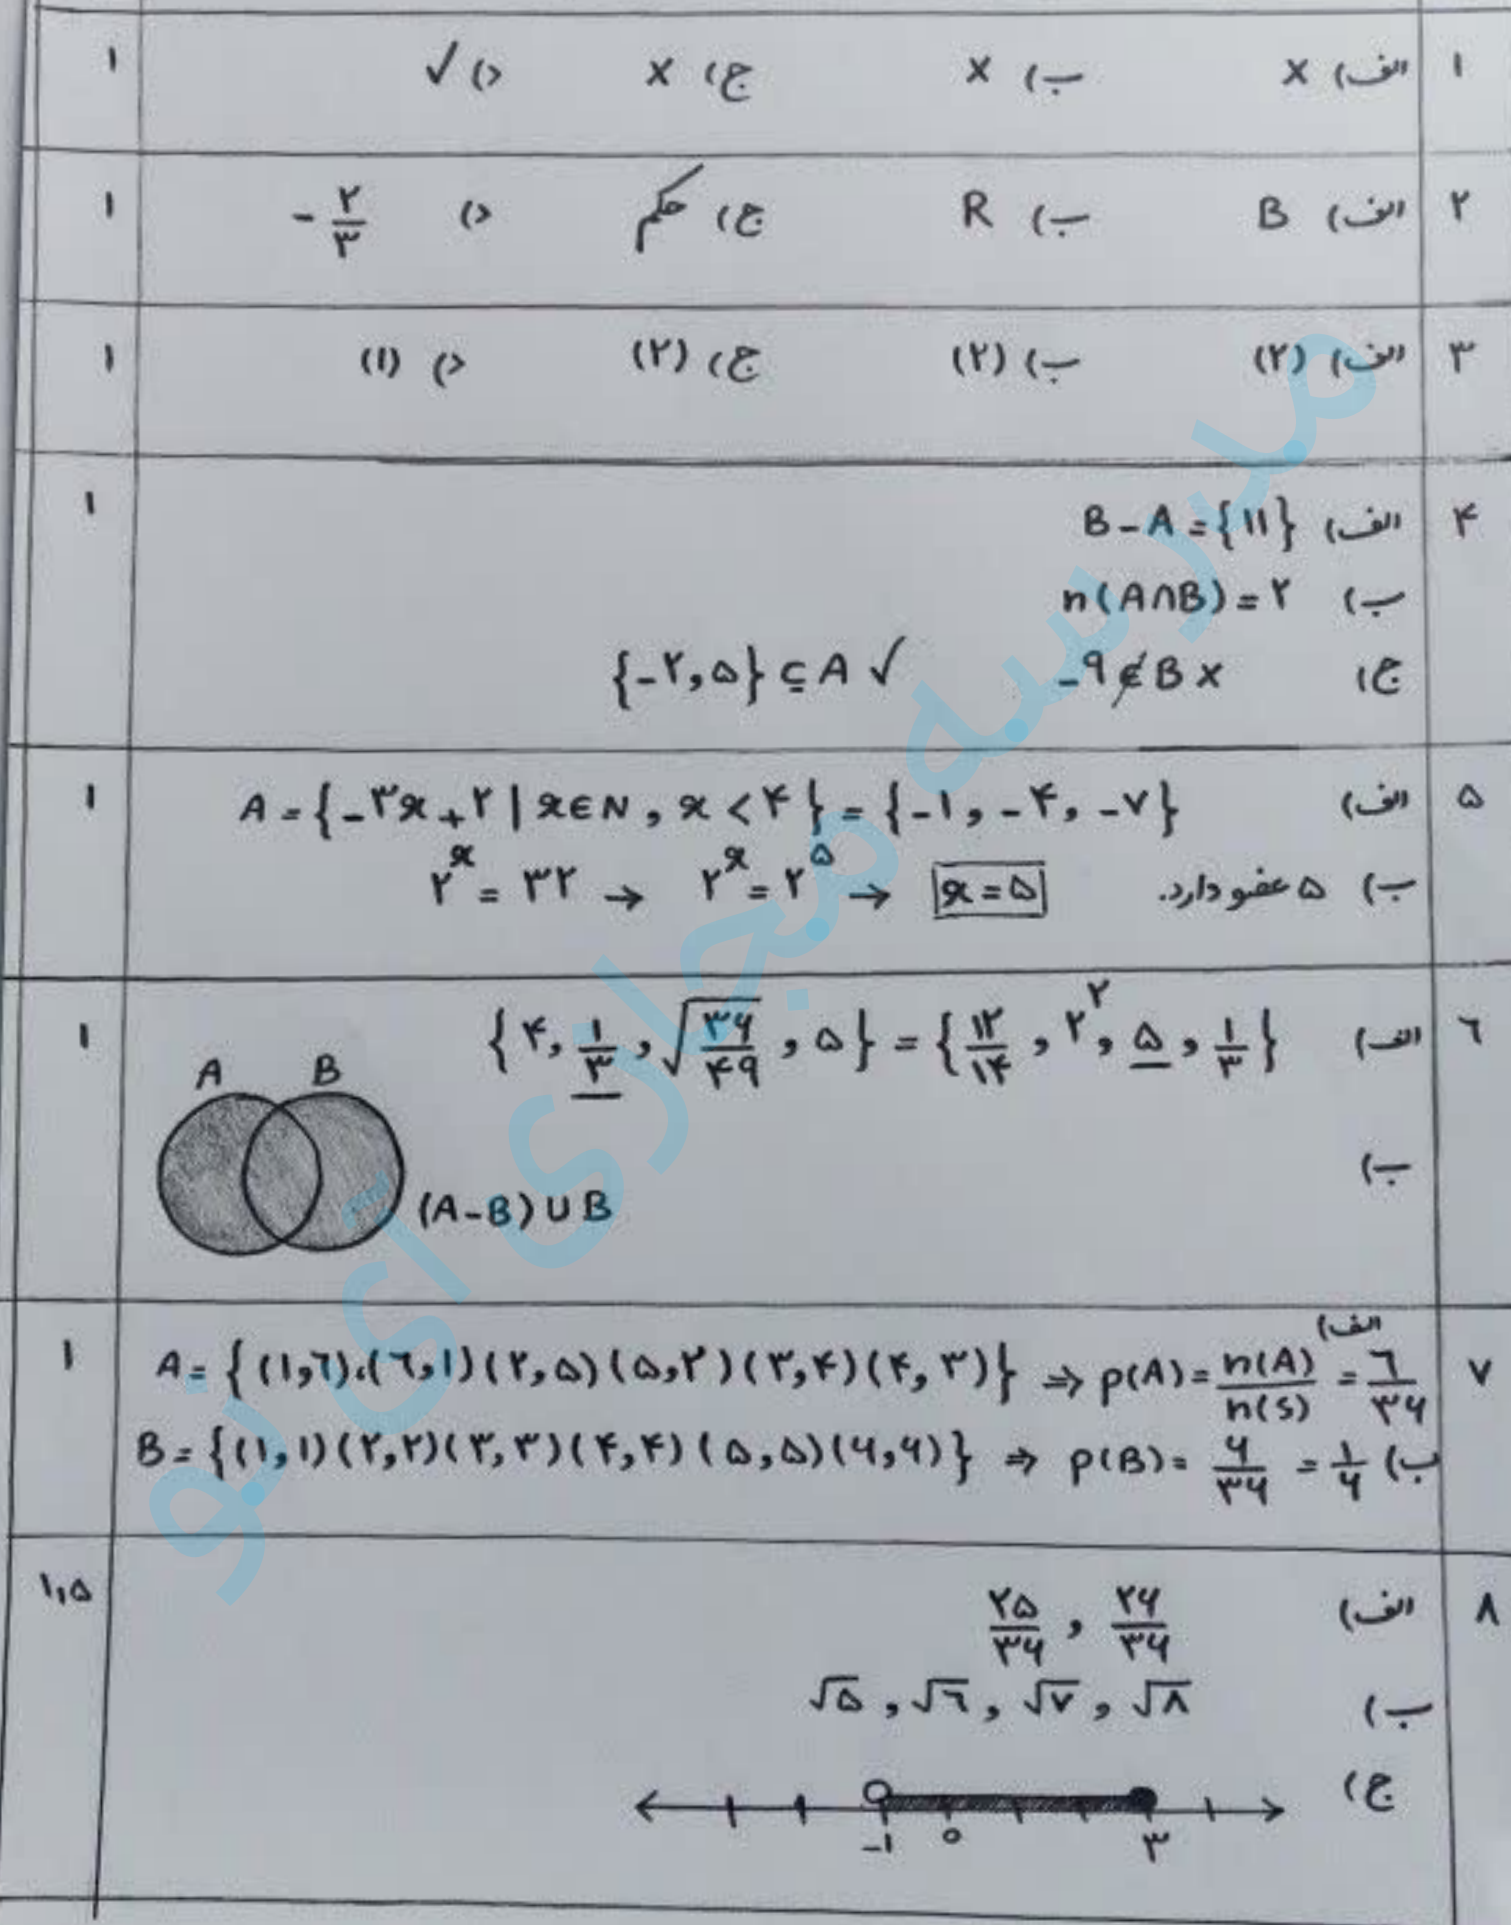 ۱ الف) × ب) × ج) × د) ✓ ۱
۲ الف) B ب) R ج) حکم د) -۲/۳ ۱
۳ الف) (۲) ب) (۲) ج) (۲) د) (۱) ۱
۴ الف) B-A={۱۱} ۱
ب) n(A∩B)=۲
ج) -۹∉B × {-۲,۵}⊆A ✓
۵ الف) A={-۳x+۲|x∈N, x<۴}={-۱,-۴,-۷} ۱
ب) ۵ عضو دارد. ۲^x=۳۲ → ۲^x=۲^۵ → x=۵
۶ الف) {۴, ۱/۳, √(۳۶/۴۹), ۵}={۱۲/۱۴, ۲^۲, ۵, ۱/۳} ۱
ب) A B (A-B)∪B
۷ الف) A={(۱,۶),(۶,۱)(۲,۵)(۵,۲)(۳,۴)(۴,۳)} ⇒ p(A)=n(A)/n(S)=۶/۳۶ ۱
ب) B={(۱,۱)(۲,۲)(۳,۳)(۴,۴)(۵,۵)(۶,۶)} ⇒ p(B)=۶/۳۶=۱/۶
۸ الف) ۲۵/۳۶ , ۲۶/۳۶ ۱,۵
ب) √۵, √۶, √۷, √۸
ج) -۱ ۰ ۳
مدرسه مجازی آی نو